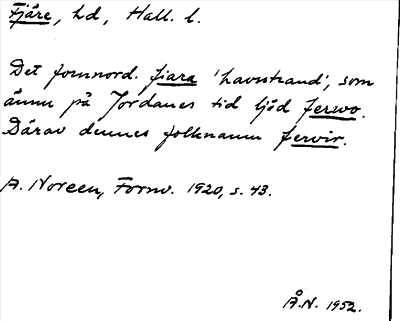 Fjäre, hd, Hall. l.
Det fornnord. fiara 'havsstrand', som
ännu på Jordanes tid ljöd ferwo.
Därav dennes folknamn fervir.
A. Noreen, Fornv. 1920, s. 43.
Å.N. 1952.